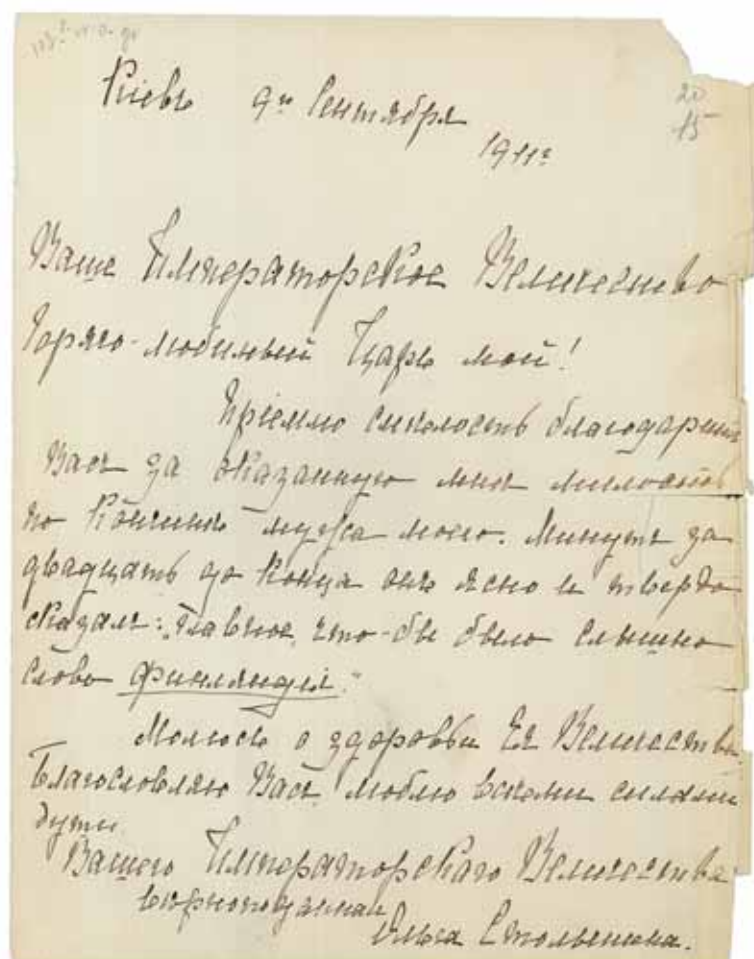 20
15
Кіевъ 9го Сентября
1911г
Ваше Императорское Величество
Горячо-любимый Царь мой!
Пріемлю смѣлость благодарить
Васъ за оказанную мнѣ милость
по кончинѣ мужа моего. Минутъ за
двадцать до конца онъ ясно и твердо
сказалъ: „Главное, что-бы было слышно
слово Финляндія."
Молюсь о здоровьи Ея Величества
Благословляю Васъ, люблю всѣми силами
души
Вашего Императорскаго Величества
вѣрноподданная
Ольга Столыпина.